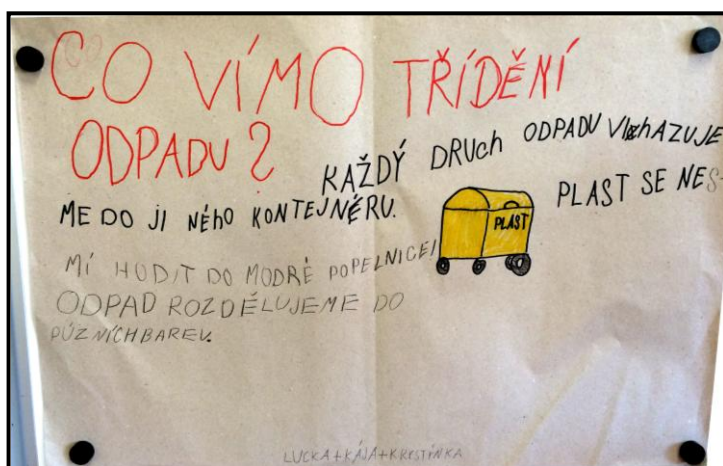 CO VÍMO TŘÍDĚNÍ
ODPADU?
KAŽDÝ DRUCH ODPADU VHAZUJE
ME DO JI NÉHO KONTEJNÉRU.
PLAST
PLAST SE NES-
MÍ HODIT DO MODRÉ POPELNICE!
ODPAD ROZDĚLUJEME DO
RŮZNÍCH BAREV.
LUCKA+KÁJA+KRYSTÍNKA